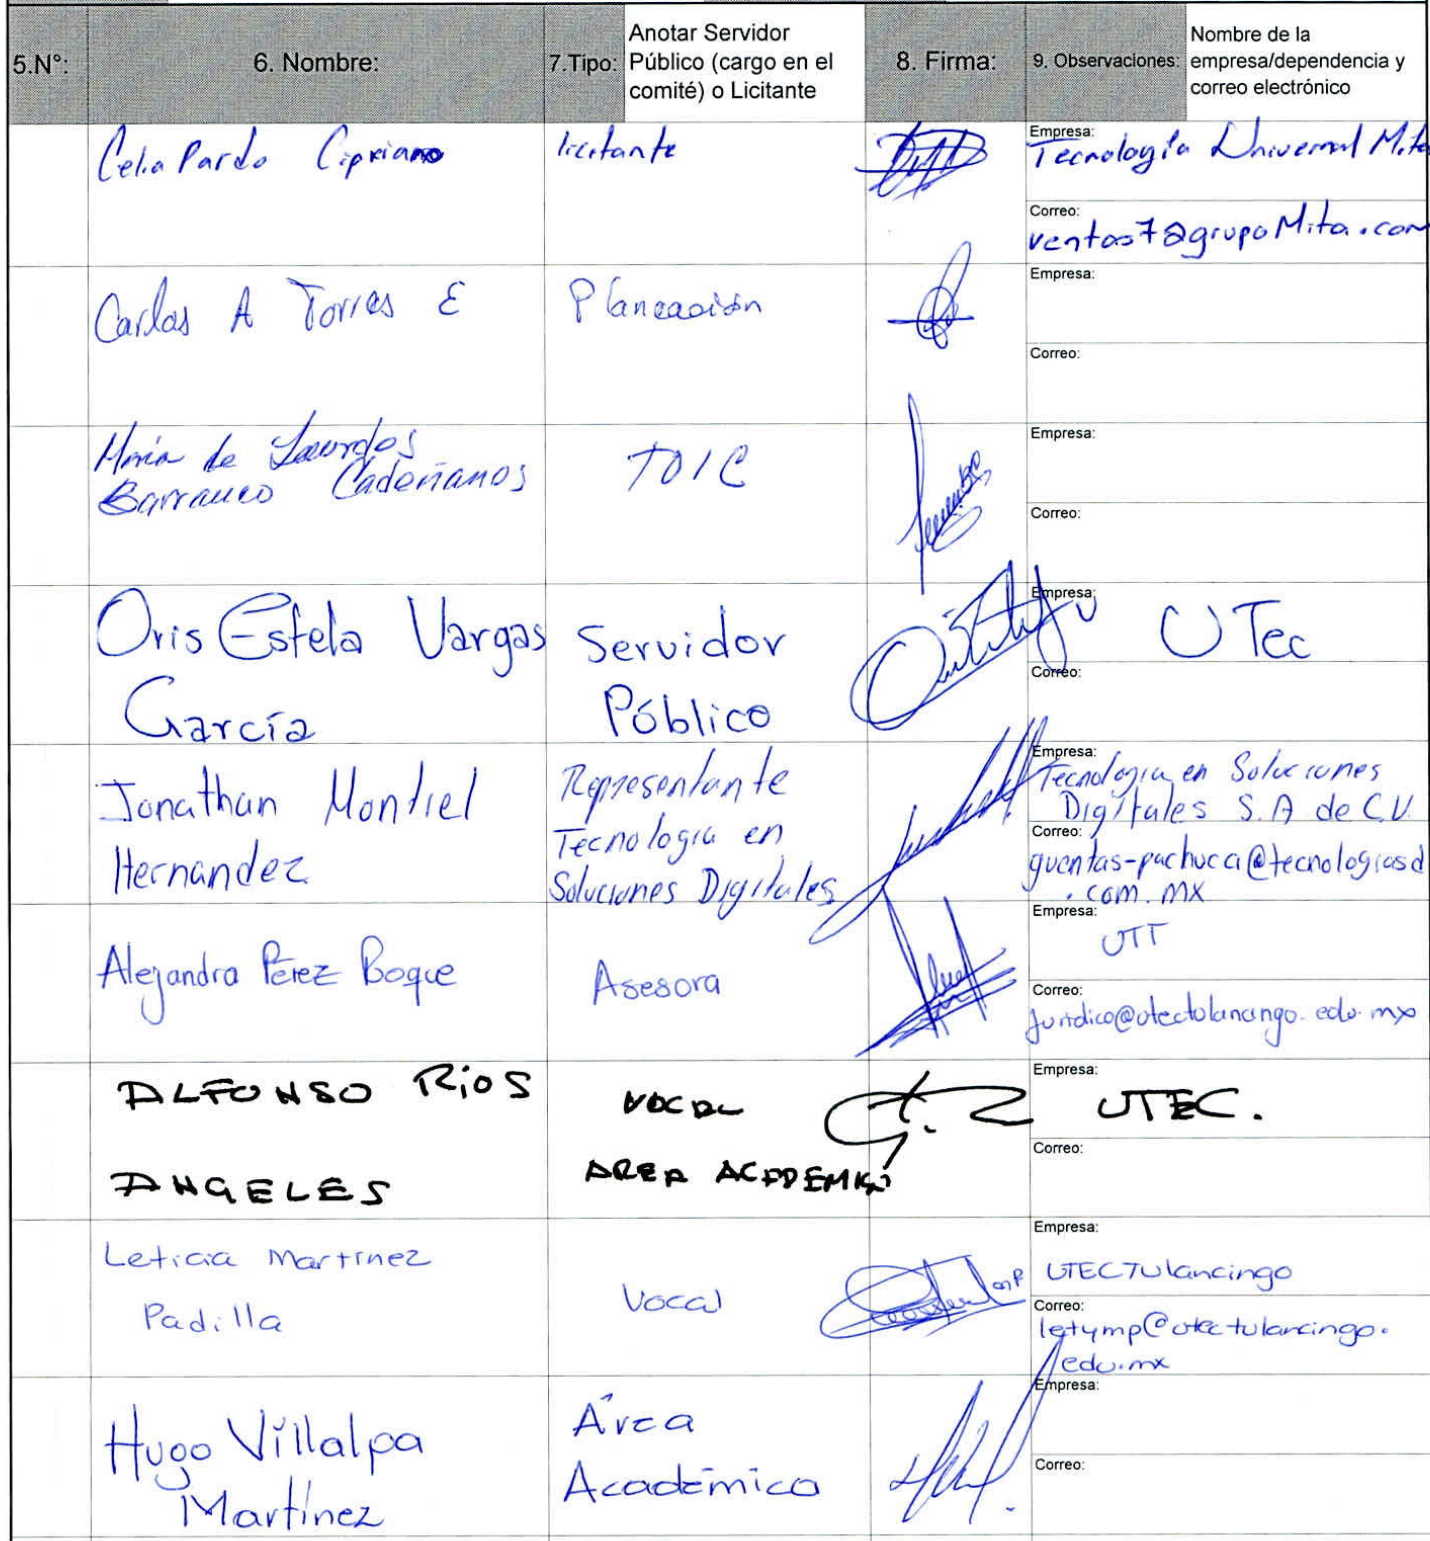 5.N°:
6. Nombre:
7.Tipo:
Anotar Servidor
Público (cargo en el
comité) o Licitante
8. Firma:
9. Observaciones:
Nombre de la
empresa/dependencia y
correo electrónico
Celia Pardo Cipriano
licitante
Empresa:
Tecnología Universal Mita
Correo:
ventas7@grupoMita.com
Carlos A Torres E
Planeación
Empresa:
Correo:
María de Lourdes
Barranco Cadeñanos
TOIC
Empresa:
Correo:
Oris Estela Vargas
García
Servidor
Público
Empresa:
UTec
Correo:
Jonathan Montiel
Hernandez
Representante
Tecnologia en
Soluciones Digitales
Empresa:
Tecnologia en Soluciones
Digitales S.A de C.V.
Correo:
gventas-pachuca@tecnologiasd
.com.mx
Alejandra Pérez Boque
Asesora
Empresa:
UTT
Correo:
juridico@utectulancingo.edu.mx
ALFONSO RiOS
ANGELES
VOCAL
AREA ACADEMICA
Empresa:
UTEC.
Correo:
Leticia Martinez
Padilla
Vocal
Empresa:
UTECTulancingo
Correo:
letymp@utectulancingo.
edu.mx
Hugo Villalpa
Martínez
Área
Académica
Empresa:
Correo: